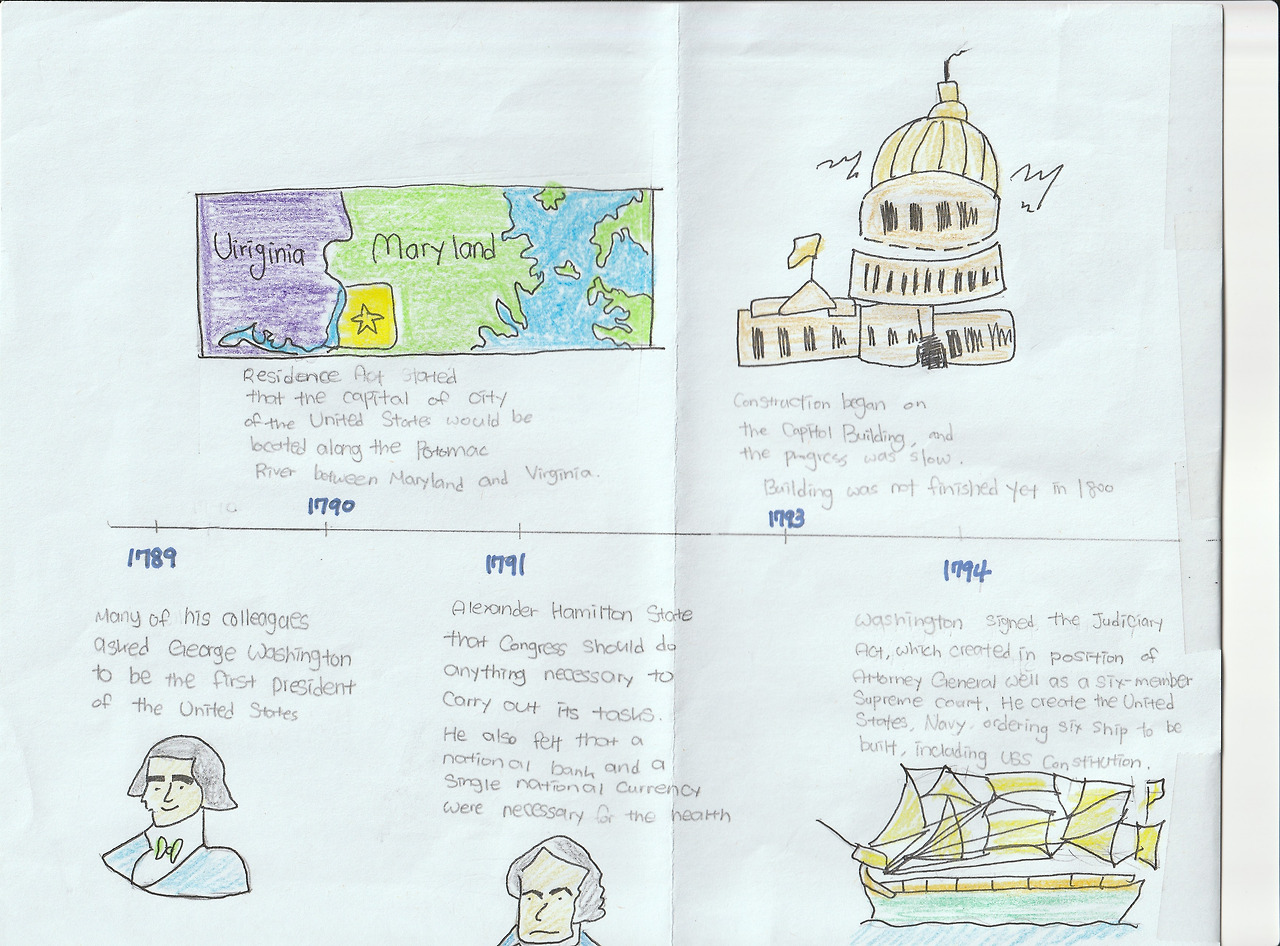 Uiriginia
Maryland
Residence Act stated
that the capital of city
of the United States would be
located along the Potomac
River between Maryland and Virginia.
Construction began on
the Capitol Building, and
the progress was slow.
Building was not finished yet in 1800
1790
1793
1789
1791
1794
Many of his colleagues
asked George Washington
to be the first president
of the United States
Alexander Hamilton State
that Congress should do
anything necessary to
carry out its tasks.
He also felt that a
national bank and a
single national currency
were necessary for the health
Washington signed the Judiciary
Act, which created in position of
Attorney General well as a six-member
Supreme court. He create the United
States, Navy, ordering six ship to be
built, including USS Constitution.